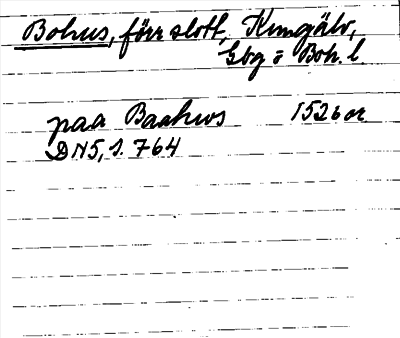 Bohus, förr slott, Kungälv,
Gbg o Boh. l.
paa Baahws 1526 or.
DN5, s. 764